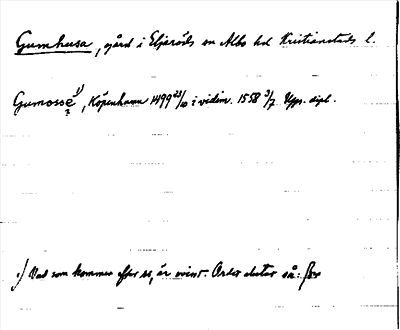 Gumhusa, gård i Eljaröds sn Albo hd Kristianstads l.
Gumosse 1), Köpenhamn 1499 23/10 i vidim. 1558 3/7. Upps. dipl.
1) Vad som kommer efter ss, är ovisst. Ordet slutar så: